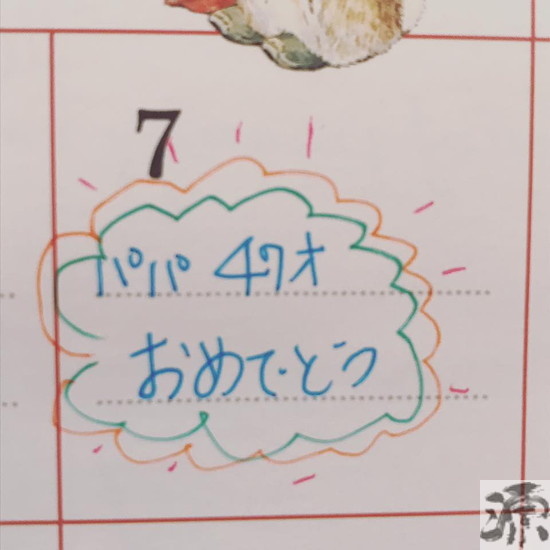 7
パパ 47才
おめでとう
源